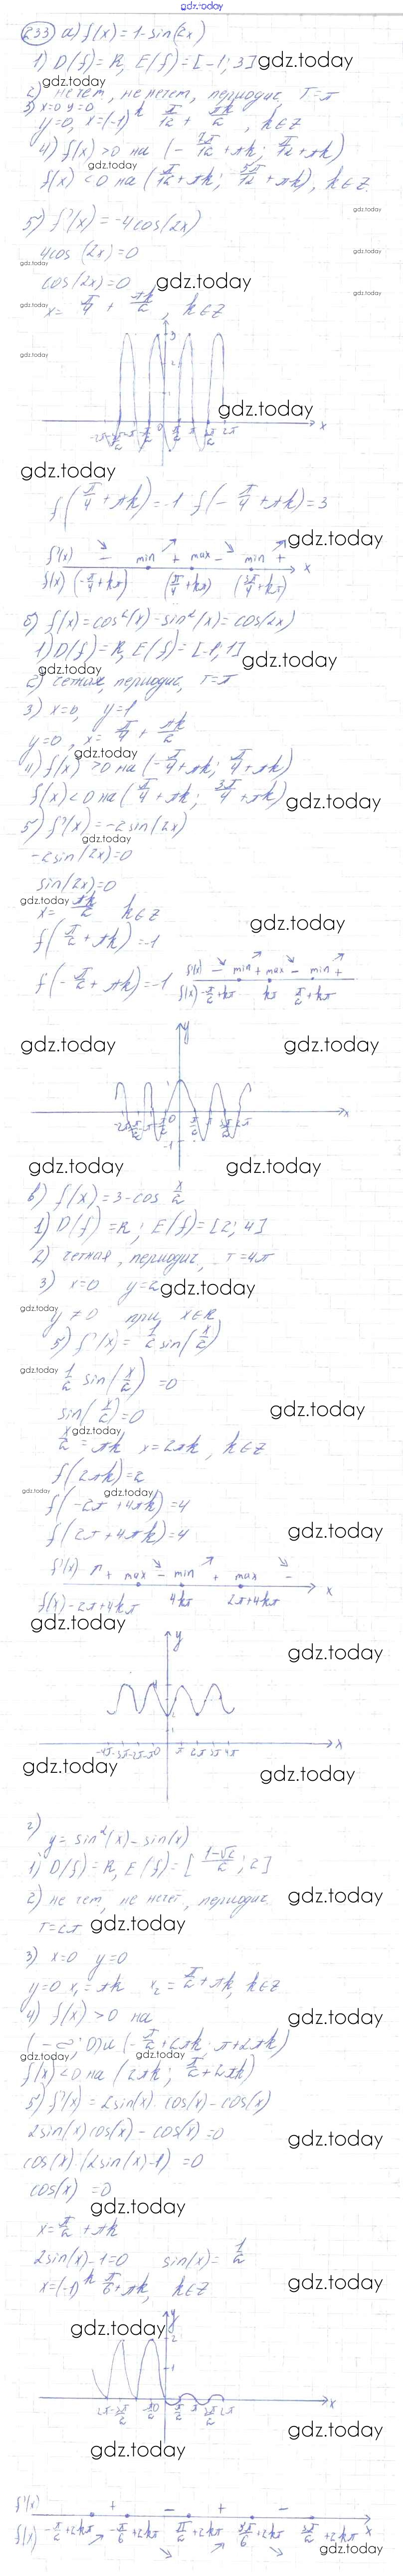 gdz.today
233 а) f(x) = 1-sin(2x)
1) D(f) = R, E(f) = [-1; 3] gdz.today
2) не чет, не нечет, периодис, T=π
gdz.today
3) x=0 y=0
y=0, x=(-1)^k π/12 + πk/2, k∈Z
4) f(x) >0 на (-7π/12 + πk; π/12 + πk)
gdz.today
f(x) <0 на (π/12 + πk; 5π/12 + πk), k∈Z
gdz.today
5) f'(x) = -4cos(2x)
4cos(2x)=0
gdz.today
cos(2x)=0 gdz.today
gdz.today
gdz.today
x= π/4 + πk/2, k∈Z
gdz.today
gdz.today
gdz.today
f(π/4 + πk) = -1 f(-π/4 + πk) = 3
gdz.today
f'(x) - min + max - min +
f(x) (-π/4 + kπ) (π/4 + kπ) (3π/4 + kπ) x
б) f(x) = cos²(x) - sin²(x) = cos(2x)
1) D(f) = R, E(f) = [-1; 1] gdz.today
gdz.today
2) четная, периодис, T=π
3) x=0, y=1
y=0, x= π/4 + πk/2
gdz.today
4) f(x) >0 на (-π/4 + πk; π/4 + πk)
f(x) <0 на (π/4 + πk; 3π/4 + πk) gdz.today
5) f'(x) = -2sin(2x)
gdz.today
-2sin(2x)=0
sin(2x)=0
gdz.today
x= πk/2 k∈Z
gdz.today
f(π/2 + πk) = -1
f(-π/2 + πk) = -1
f'(x) - min + max - min +
f(x) -π/2 + kπ kπ π/2 + kπ
gdz.today gdz.today
gdz.today gdz.today
в) f(x) = 3-cos x/2
1) D(f) = R; E(f) = [2; 4]
2) четная, периодис, T=4π
3) x=0 y=2 gdz.today
gdz.today
y ≠ 0 при x∈R
5) f'(x) = 1/2 sin(x/2)
gdz.today
1/2 sin(x/2) = 0
sin(x/2) = 0
gdz.today
gdz.today
x/2 = πk x=2πk, k∈Z
f(2πk) = 2
gdz.today gdz.today
f(-2π + 4πk) = 4
f(2π + 4πk) = 4 gdz.today
f'(x) + max - min + max -
f(x) -2π+4kπ 4kπ 2π+4kπ x
gdz.today
gdz.today
gdz.today
gdz.today
г)
y = sin²(x) - sin(x)
1) D(f) = R, E(f) = [(1-√2)/2; 2]
2) не чет, не нечет, периодис gdz.today
T=2π gdz.today
3) x=0 y=0
y=0 x₁=πk x₂= π/2 + πk, k∈Z
4) f(x) >0 на gdz.today
(-∞; 0) и (-π/2 + 2πk; π+2πk)
gdz.today gdz.today
f(x) <0 на (2πk; π/2 + 2πk)
5) f'(x) = 2sin(x) cos(x) - cos(x)
2sin(x)cos(x) - cos(x) = 0 gdz.today
cos(x)·(2sin(x)-1) = 0
cos(x) = 0
gdz.today
x= π/2 + πk
2sin(x)-1=0 sin(x)= 1/2
x=(-1)^k π/6 + πk, k∈Z gdz.today
gdz.today
gdz.today
gdz.today
f'(x) + - + -
f(x) -π/2 + 2kπ -π/6 + 2kπ π/2 + 2kπ 5π/6 + 2kπ 3π/2 + 2kπ x
gdz.today